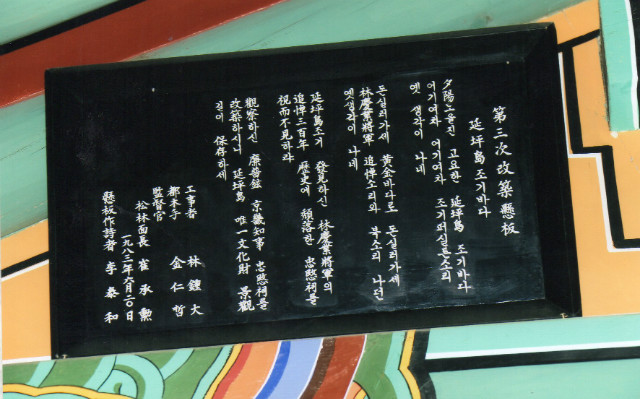 第三次改築懸板
延坪島 조기바다
夕陽노을진 고요한 延坪島 조기바다
어기여차 어기여차 조기퍼실는소리
옛 생각이 나네
돈실러가세 黃金바다로 돈실러가세
林慶業將軍 追悼소리와 북소리 나던
옛생각이 나네
延坪島조기 發見하신 林慶業將軍의
追悼三百年 歷史에 頹落한 忠愍祠를
視而不見하랴
觀察하신 廉普鉉 京畿知事 忠愍祠를
改築하시니 延坪島 唯一文化財 景觀
길이 保存하세
工事者 林鍾大
都木手 金仁哲
監督官
松林面長 崔承勳
一九八三年六月二〇日
懸板作詩者 李泰和